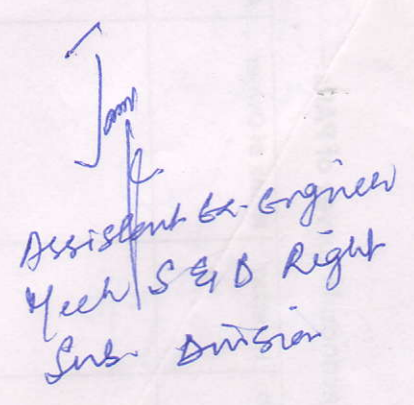 Assistant Ex. Engineer
Mech S & D Right
Sub. Division